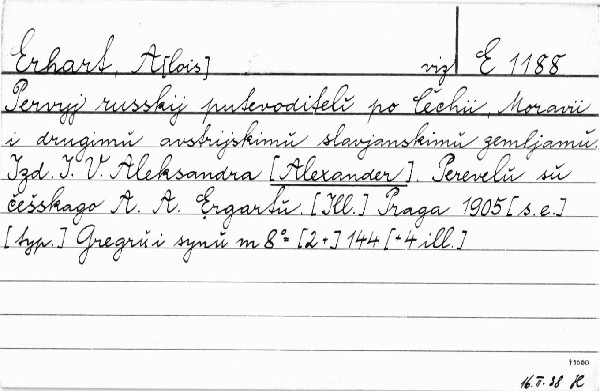 Erhart, A[lois] viz E 1188
Pervyj russkij putevoditelĭ po Čechii, Moravii
i drugimŭ avstrijskimŭ slavjanskimŭ zemljamŭ.
Izd. I. V. Aleksandra [Alexander]. Perevelŭ sŭ
češskago A. A. Ėrgartŭ. [Ill.] Praga 1905 [s. e.]
[typ.] Gregrŭ i synŭ m 8° = [2+] 144 [+4 ill.]
16.V.38 H